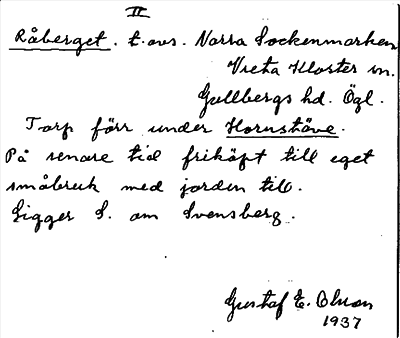 II
Råberget. t. avs. Norra Sockenmarken
Vreta Kloster sn.
Gullbergs hd. Ögl.
Torp förr under Hornstäve.
På senare tid friköpt till eget
småbruk med jorden till.
Ligger S. om Svensberg.
Gustaf E. Olson
1937